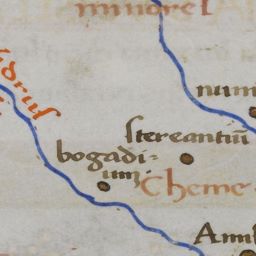 minorel
idrus
num
stereantiū
bogadi-
um
Cheme
Amb